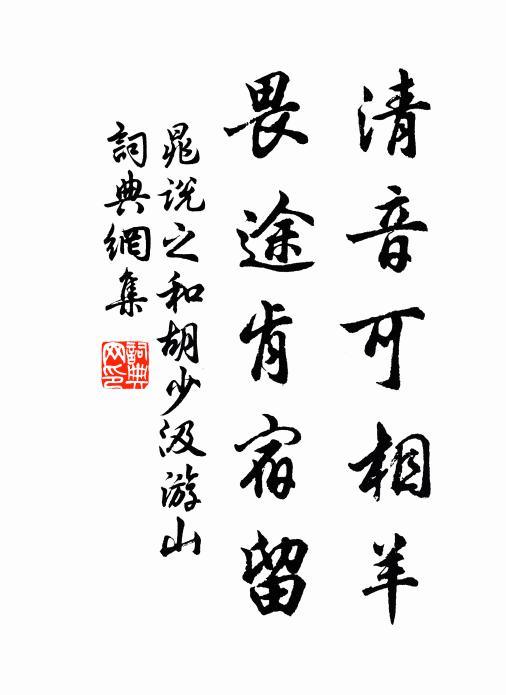 清音可相羊
畏途肯宿留
晁说之和胡少汲游山
詞典網集
詞典网印